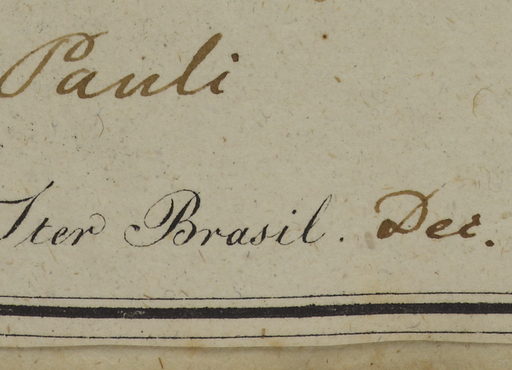 Pauli
Iter Brasil. Dec.